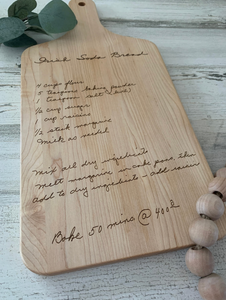 Irish Soda Bread
4 cups flour
3 teaspoons baking powder
1 teaspoon salt
½ cup sugar
1 cup raisins
½ stick margarine
Milk as needed
Mix all dry ingredients
Melt margarine in cake pan then
add to dry ingredients - add raisins
Bake 50 mins @ 400°